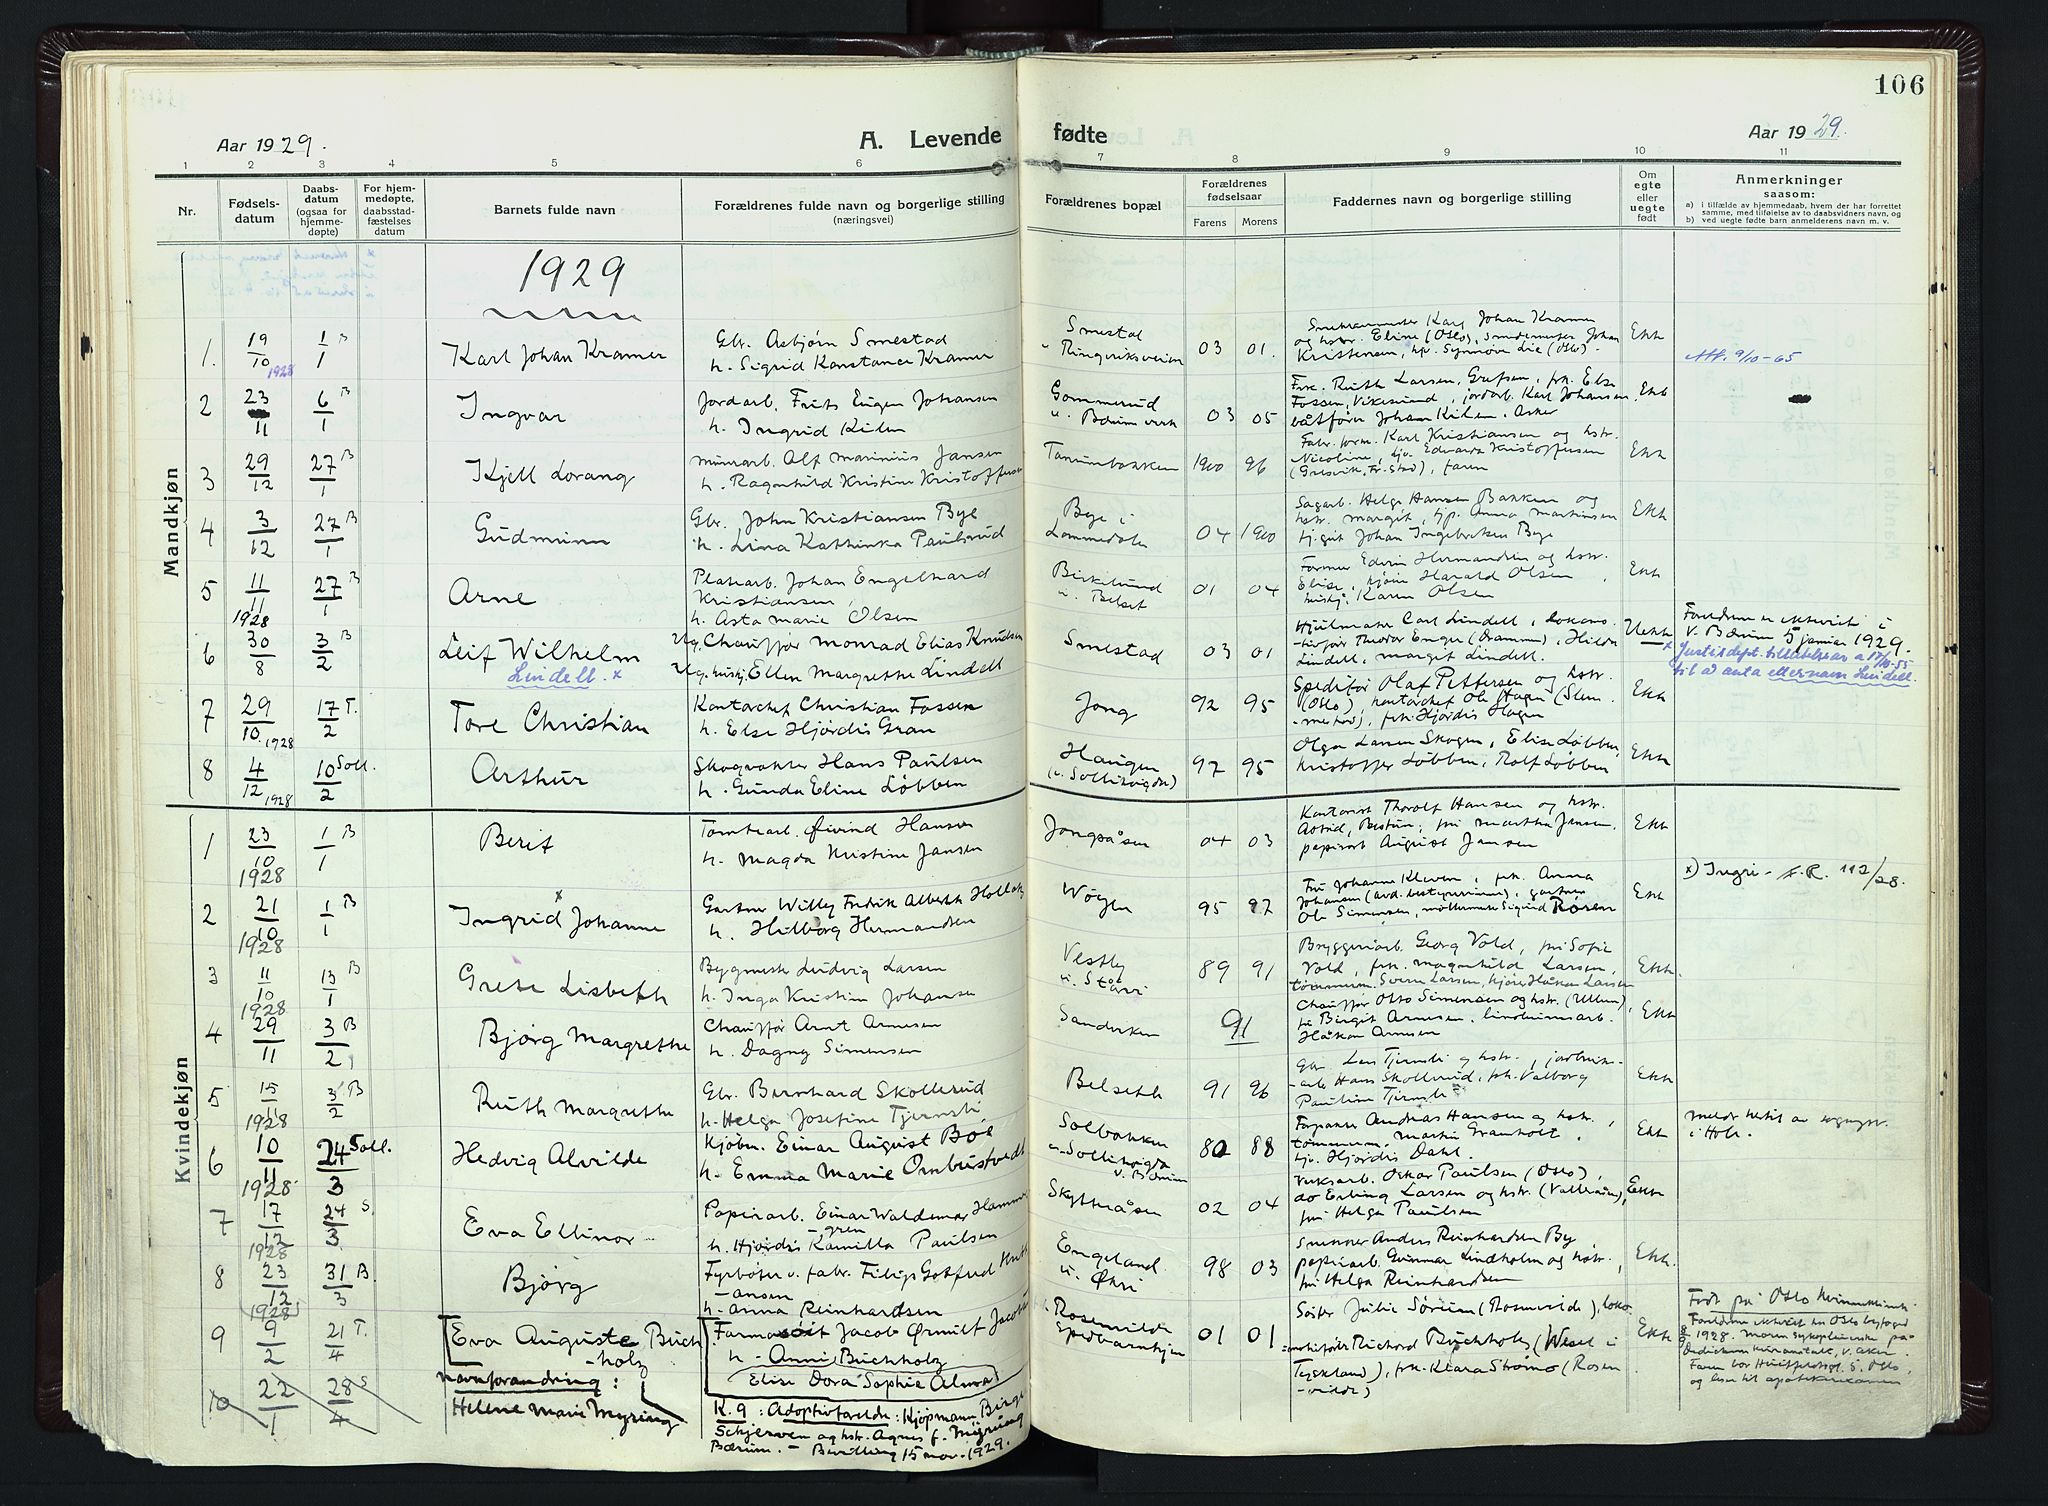 106
Aar 1929.
A. Levende fødte
Aar 1929.
1 2 3 4 5 6 7 8 9 10 11
Nr.
Fødsels-
datum
Daabs-
datum
(ogsaa for
hjemme-
døpte)
For hjem-
medøpte,
daabsstad-
fæstelses
datum
Barnets fulde navn
Forældrenes fulde navn og borgerlige stilling
(næringsvei)
Forældrenes bopæl
Forældrenes
fødselsaar
Farens Morens
Faddernes navn og borgerlige stilling
Om
egte
eller
uegte
født
Anmerkninger
saasom:
a) i tilfælde av hjemmedaab, hvem der har forrettet
samme, med tilføielse av to daabsvidners navn, og
b) ved uegte fødte barn anmelderens navn m. v.
1929
Mandkjøn
1. 19/10 1928 1/1 B Karl Johan Kramer
Gbr. Asbjørn Smestad
h. Sigrid Konstance Kramer
Smestad
v. Ringeriksveien 03 01.
og hstr. Eline (Oslo), Johan
Kristensen, Synnøve Lie (Oslo).
Ekte
Att. 9/10-65
2 23/11 6/1 B Ingvar
Jordarb. Frits Eugen Johansen
h. Ingrid Kilen
Gommerud
v. Bærum verk 03 05
Frk. Ruth Larsen, Grefsen, frk. Else
Fossen, Vikesund, jordarb. Karl Johansen,
Johan Kilen, Asker
Ekte
3 29/12 27/1 B Kjell Lorang
Murarb. Alf Marinius Jansen
h. Ragnhild Kristine Kristoffersen
Tanumbakken 1900 96
Fabr. form. Karl Kristiansen og hstr.
Nicoline, Edvarda Kristoffersen
(Gresvik, Fr.stad), faren
Ekte
4 3/12 27/1 B Gudmunn
Gbr. John Kristiansen Bye
h. Lina Kathinka Paulsrud
Bye i
Lommedalen 04 1900
Sagarb. Helge Hansen Bakken og
hstr. Margit, Anna Martinsen
tj.gut Johan Ingebretsen Bye
Ekte
5 11/11 1928 27/1 B Arne
Platearb. Johan Engelhard
Kristiansen,
h. Asta Marie Olsen
Birkelund
v. Belset 01 04
Former Edvin Hermandsen og hstr.
Elise, Harald Olsen,
Karen Olsen
Ekte
6 30/8 3/2 B Leif Wilhelm
Lindell. x
Ug. Chauffør Monrad Elias Knudsen
Ug. huskj. Ellen Margrethe Lindell
Smestad 03 01
Hjulmaker Carl Lindell, lokomo-
tivfør. Theodor Enger (Drammen), Hilda
Lindell, Margit Lindell.
Uekte x
Foreldrene er ektevict i
V. Bærum 5 januar 1929.
Justisdept. tillatelse av 17/10-55
til å anta etternavn Lindell.
7 29/10 1928 17/2 T. Tore Christian
Kontorchef Christian Fossen
h. Else Hjørdis Gran
Jong 92 95
Speditør Olaf Pettersen og hstr.
(Oslo), kontorchef Ole Hagen (Slem-
mestad), frk. Hjørdis Hagen
Ekte
8 4/12 1928 10/2 Soll. Arthur
Skogvokter Hans Paulsen
h. Gunda Eline Løbben
Haugen
(v. Sollihøgda) 97 95
Olga Larsen Skogen, Elise Løbben,
Kristoffer Løbben, Rolf Løbben
Ekte
Kvindekjøn
1 23/10 1928 1/1 B Berit
Tomtearb. Øivind Hansen
h. Magda Kristine Jansen
Jongsåsen 04 03
Kontorist Thorolf Hansen og hstr.
Astrid, Bestum, fru Martha Jansen,
papirarb. August Jansen
Ekte
2 21/10 1928 1/1 B Ingrid x Johanne
Gartner Willy Fredrik Alberth Hollatz
h. Hilborg Hermandsen
Wøyen 95 97
Fru Johanne Kleven, frk. Anna
Johansen (avd. bestyrerinne), gartner
Ole Simensen, Sigurd Røren
Ekte
x) Ingri - s. R. 112/28.
3 11/10 1928 13/1 B Grete Lisbeth
Bygmester Ludvig Larsen
h. Inga Kristine Johansen
Vestby
v. Stårri 89 91
Bryggeriarb. Georg Vold, fru Sofie
Vold, frk. Magnhild Larsen,
tømmerm. Larsen, Håkon Larsen
Ekte.
4 29/11 3/2 B Bjørg Margrethe
Chauffør Arnt Arnesen
h. Dagny Simensen
Sandviken 91
Chauffør Otto Simensen og hstr. (Ullern),
fr. Birgit Arnesen, linoleumsarb.
Håkon Arnesen
Ekte
5 15/11 1928 3/2 B Ruth Margrethe
Gbr. Bernhard Skollerud
h. Helga Josefine Tjernsli
Belseth 91 96
Gbr. Lars Tjernsli og hstr., jordbruks-
arb. Hans Skollerud, frk. Valborg
Pauline Tjernsli
Ekte
6 10/11 1928 24/3 Soll. Hedvig Alvilde
Kjøbm. Einar August Bøe
h. Emma Marie Ombustvedt
Solbakken
v. Sollihøgda
v. Bærum 82 88
Forpakter Andreas Hansen og hstr.,
tømmerm. Martin Gramholt,
Hjørdis Dahl.
Ekte
i Hole.
7 17/12 1928 24/3 S. Eva Ellinor
Papirarb. Einar Waldemar Hammer-
gren
h. Hjørdis Kamilla Paulsen
Skytteråsen 02 04
Verksarb. Oskar Paulsen (Oslo),
do Erling Larsen og hstr.
fru Helga Paulsen
Ekte
8 23/12 (1928) 31/3 B Bjørg
Fyrbøter v. fabr. Filip Gotfred
-ansen
h. Anna Reinhardsen
Engeland
v. Øvri 98 03
Snekker Anders Reinhardsen By,
papirarb. Gunnar Lindholm og hstr.,
fru Helga Reinhardsen
Ekte.
9 9/2 21/4 T. Eva Auguste Buch-
holz
navnforandring:
Helene Marie Myring
Farmasøit Jacob Ørnulf
h. Anni Buchholz
(Elise Dora Sophie Alma)
Rosenvilde
Spedbarnhjem 01 01
Søster Julie Sørein (Rosenvilde), loko-
motivfører Richard Buchholz (Wesel i
Tyskland), frk. Klara Strømø (Rosen-
vilde)
Ekte
Født på Oslo Kvinneklinikk.
Foreldrene ektevict hos Oslo byfoged
8/9 1928. Moren sykepleierske på
Dedichens kuranstalt, V. Aker.
Faren bor Oslo,
og leser til apotekereksamen
10 22/1 28/4 S
K. 9: Adoptivforeldre: Kjøpmann Birger
Schjerven og hstr. Agnes f. Myring
Bærum. - Bevilling 15 nov. 1929.